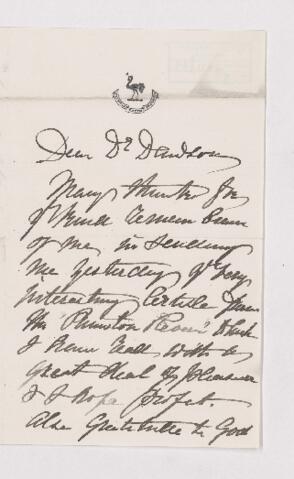 Dear Dr Dawson
Many thanks for
yr kind remembrance
of me in sending
me yesterday yr very
interesting Article from
the Princeton Review which
I have read with a
great deal of pleasure
& I hope profit.
Also Gratitude to God